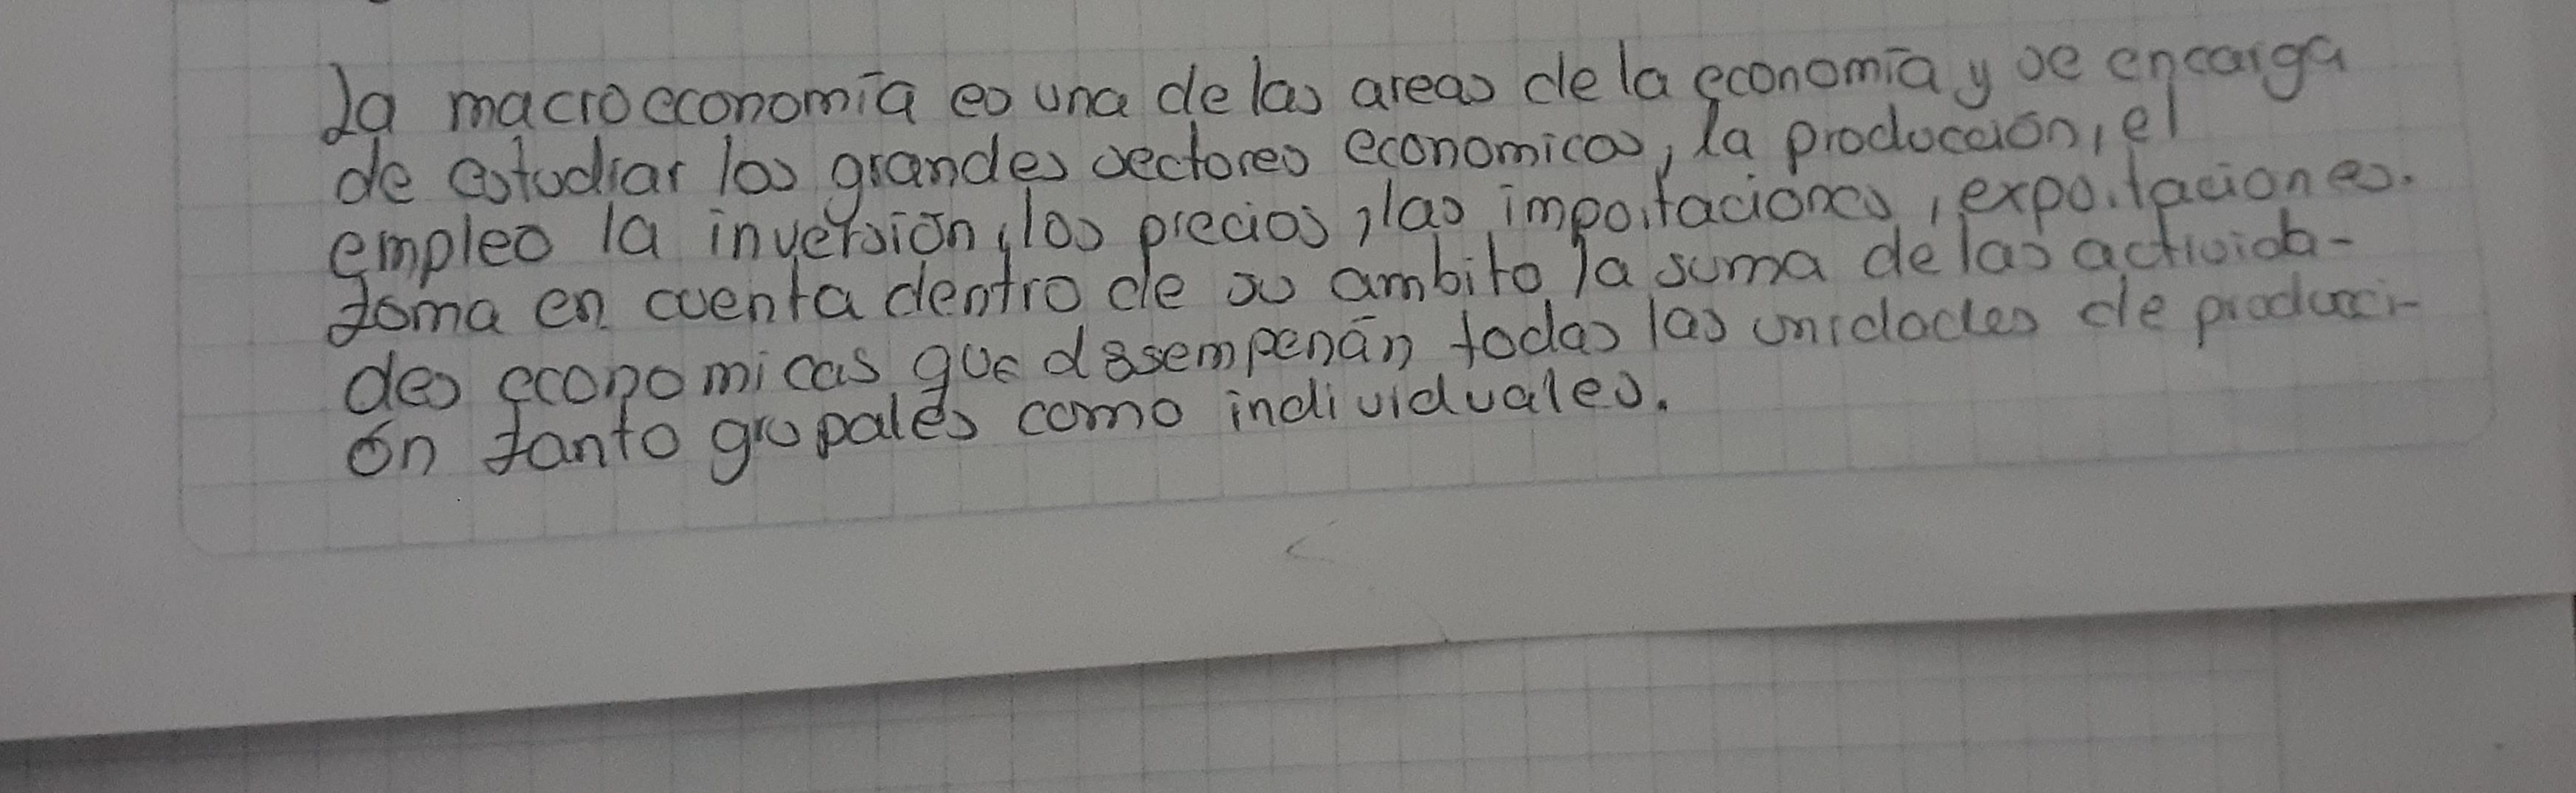 La macroeconomía es una de las areas de la economía y se encarga
de estudiar los grandes sectores economicos, la producción, el
empleo la inversión, los precios, las importaciones, exportaciones.
toma en cuenta dentro de su ambito la suma de las activida-
des economicas que desempenán todas las unidades de producci-
ón tanto grupales como individuales.